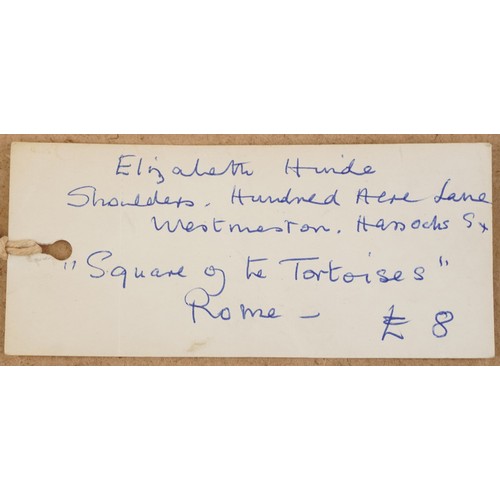 Elizabeth Hinde
Shoulders. Hundred Acre Lane
Westmeston. Hassocks Sx
"Square of the Tortoises"
Rome - £8